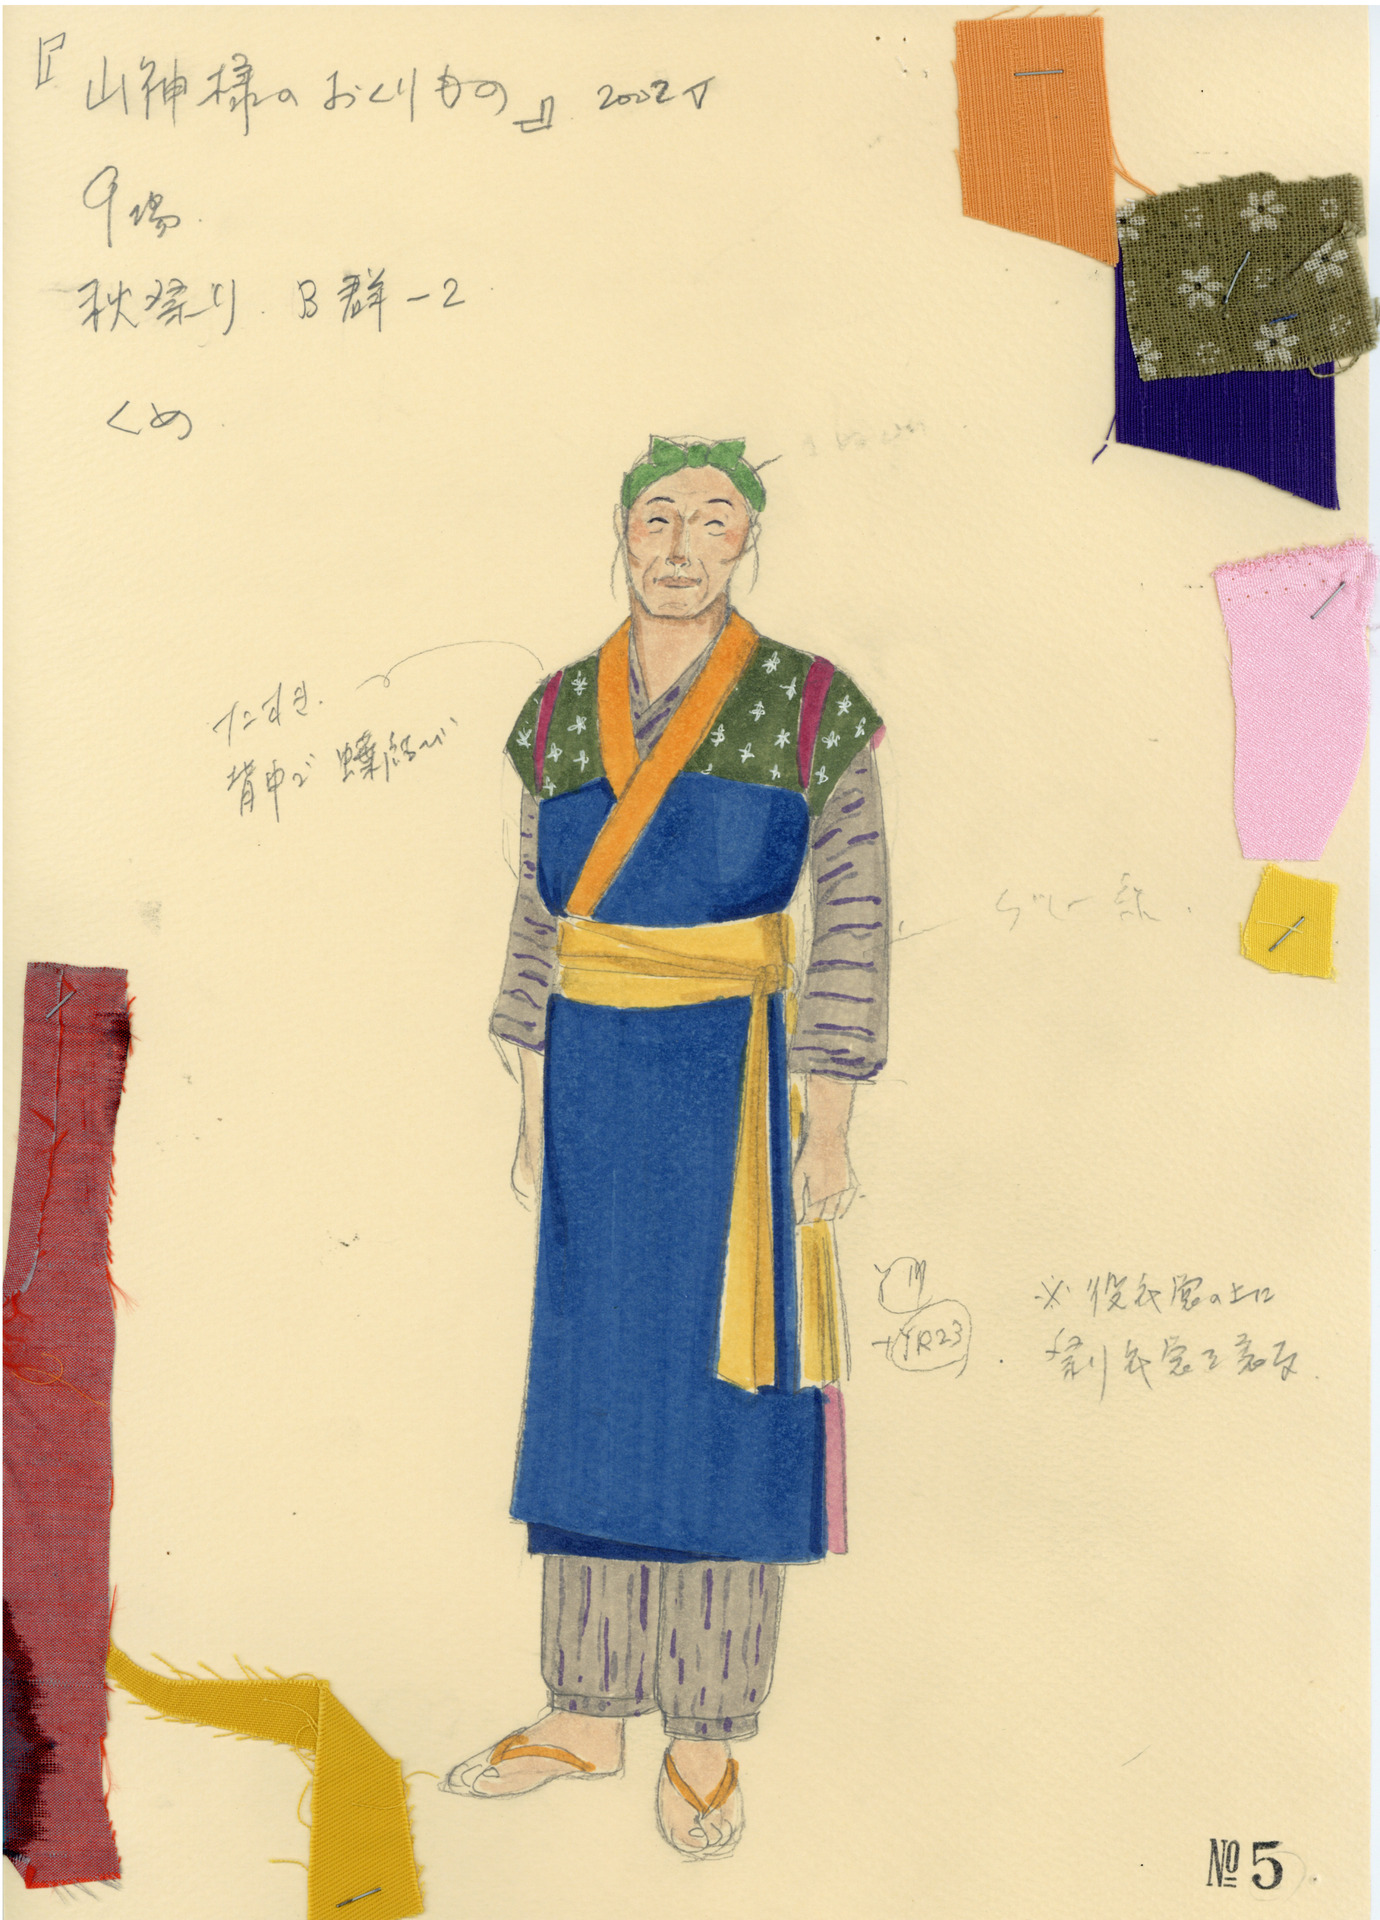 『山神様のおくりもの』 2002
9場.
秋祭り. B群-2
くめ
たすき.
背中で 蝶結び
グレー系.
+YR23
※役衣裳の上に
祭り衣裳を着る.
No 5